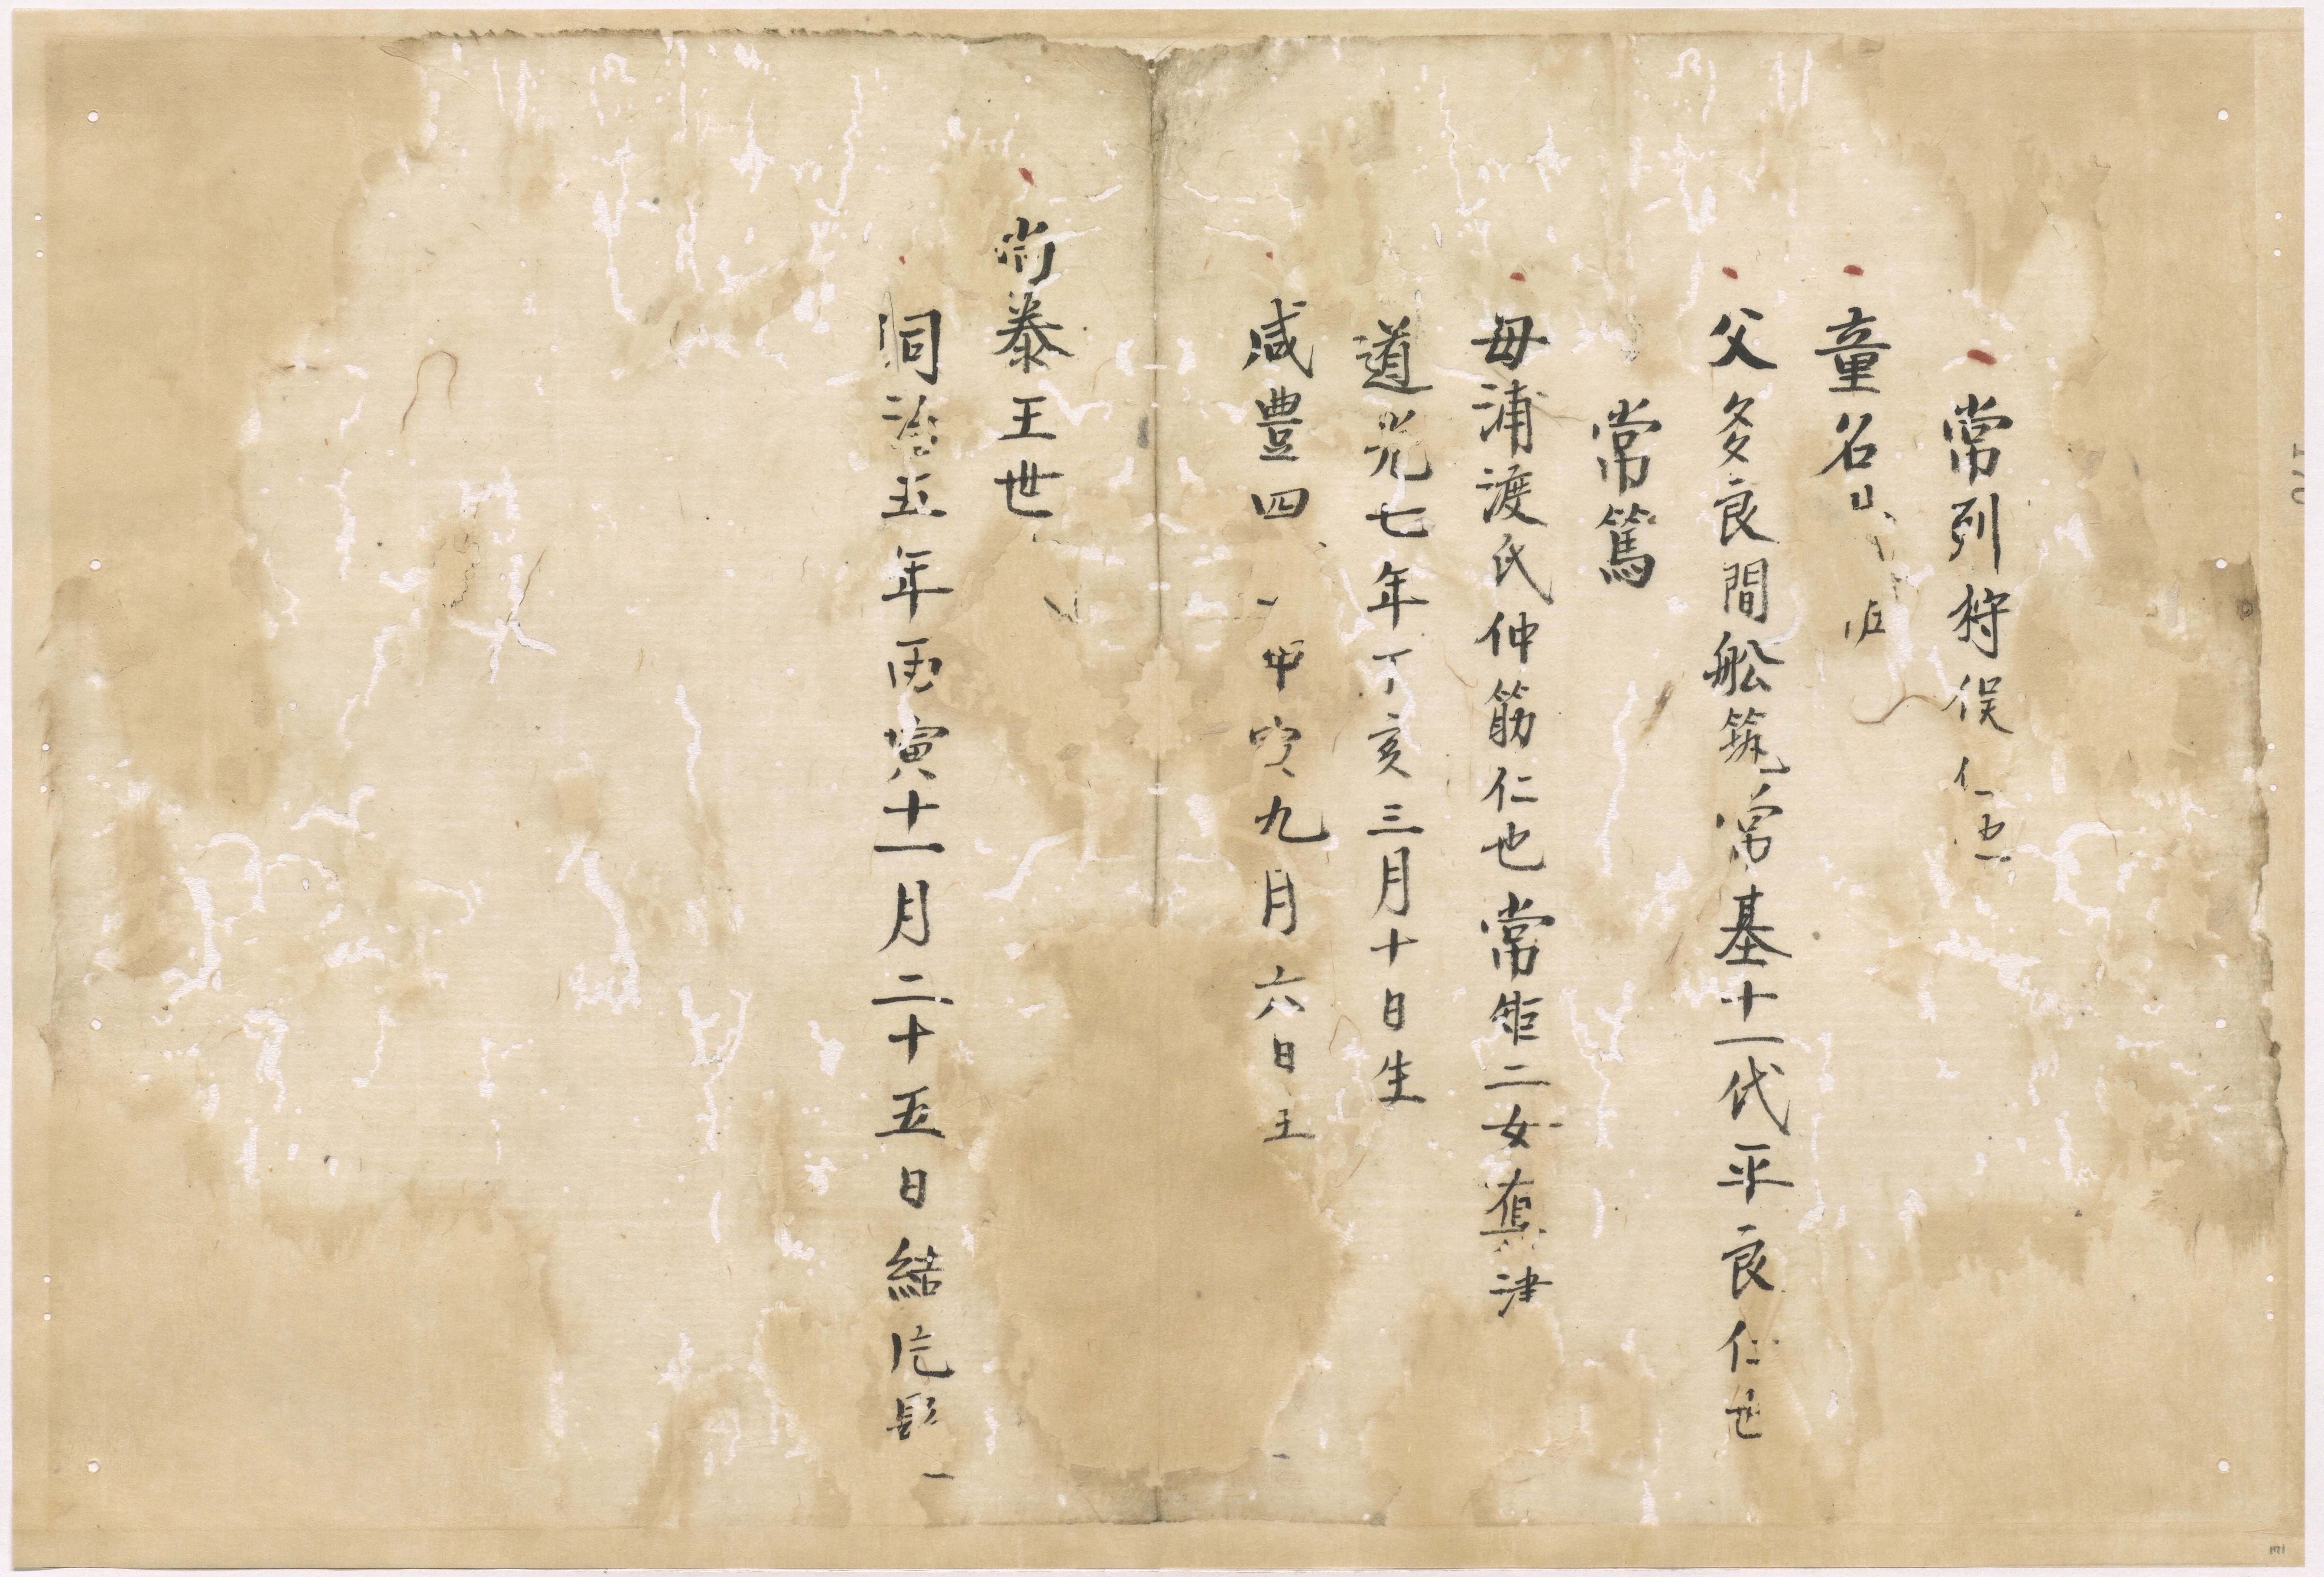 常列狩俣仁也
童名
父多良間舩筑常基十一代平良仁也
常篤
母浦渡氏仲筋仁也常矩二女奪津
道光七年丁亥三月十日生
咸豊四 甲寅九月六日
尚泰王世
同治五年丙寅十一月二十五日結片髪